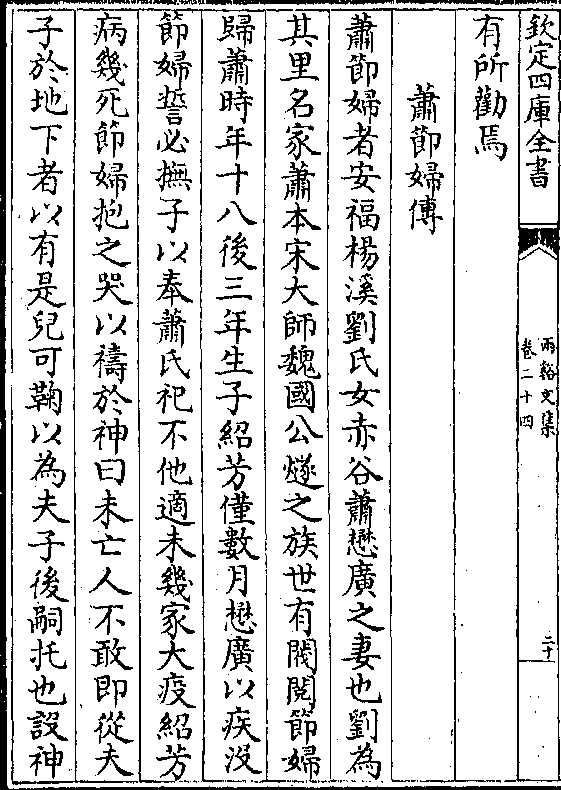 欽定四庫全書
兩谿文集
卷二十四
二十
有所勸焉
蕭節婦傳
蕭節婦者安福楊溪劉氏女赤谷蕭懋廣之妻也劉為
其里名家蕭本宋大師魏國公燧之族世有閥閱節婦
歸蕭時年十八後三年生子紹芳僅數月懋廣以疾沒
節婦誓必撫子以奉蕭氏祀不他適未幾家大疫紹芳
病幾死節婦抱之哭以禱於神曰未亡人不敢即從夫
子於地下者以有是兒可鞠以為夫子後嗣托也設神